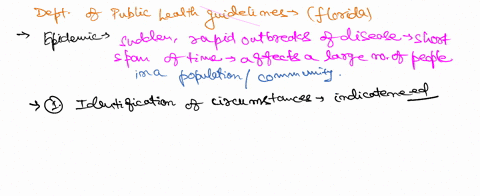 Dept. of Public health guidelines → (florida)
→ Epidemic → sudden, rapid outbreaks of disease → short
span of time → affects a large no. of people
in a population / community.
→ ① Identification of circumstances → indicate need